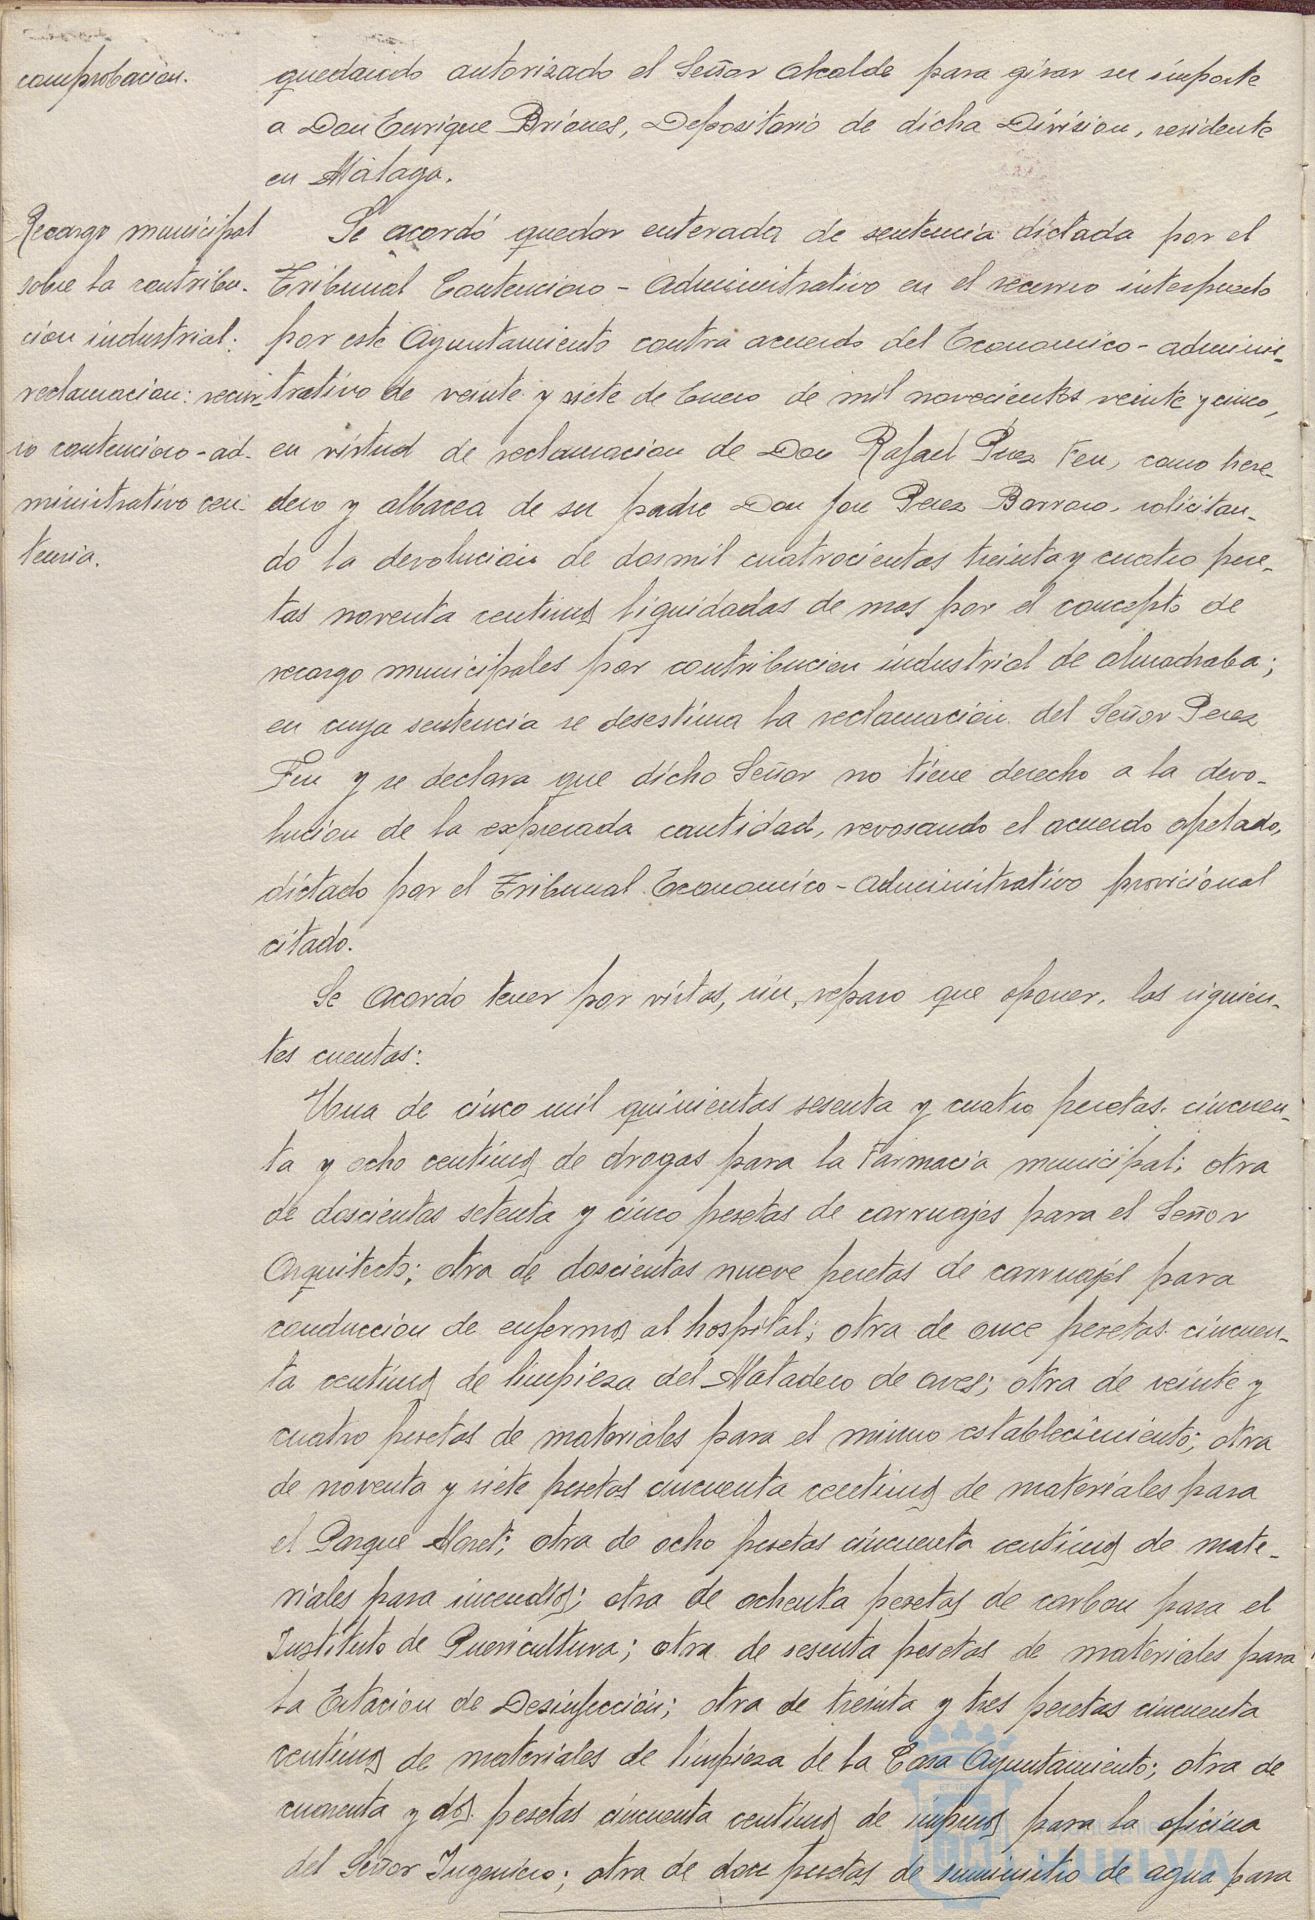 comprobacion.
quedando autorizado el Señor Alcalde para girar su importe
a Don Enrique Briones, Depositario de dicha Division, residente
en Málaga.
Recargo municipal
sobre la contribu-
cion industrial:
reclamacion: recur-
so contencioso-ad-
ministrativo sen-
tencia.
Se acordó quedar enterada de sentencia dictada por el
Tribunal Contencioso-administrativo en el recurso interpuesto
por este Ayuntamiento contra acuerdo del Economico-adminis-
trativo de veinte y siete de Enero de mil novecientos veinte y cinco,
en virtud de reclamacion de Don Rafael Perez Feu, como here-
dero y albacea de su padre Don Jose Perez Barroso, solicitan-
do la devolucion de dos mil cuatrocientas treinta y cuatro pese-
tas noventa centimos liquidadas de mas por el concepto de
recargo municipales por contribucion industrial de almadraba;
en cuya sentencia se desestima la reclamacion del Señor Perez
Feu y se declara que dicho Señor no tiene derecho a la devo-
lucion de la expresada cantidad, revosando el acuerdo apelado,
dictado por el Tribunal Economico-administrativo provicional
citado.
Se acordó tener por vistas, sin reparo que oponer, las siguien-
tes cuentas:
Una de cinco mil quinientas sesenta y cuatro pesetas cincuen-
ta y ocho centimos de drogas para la Farmacia municipal; otra
de doscientas setenta y cinco pesetas de carruajes para el Señor
Arquitecto; otra de doscientas nueve pesetas de carruajes para
conducción de enfermos al hospital; otra de once pesetas cincuen-
ta centimos de limpieza del Matadero de aves; otra de veinte y
cuatro pesetas de materiales para el mismo establecimiento; otra
de noventa y siete pesetas cincuenta centimos de materiales para
el Parque Moret; otra de ocho pesetas cincuenta centimos de mate-
riales para incendios; otra de ochenta pesetas de carbon para el
Instituto de Puericultura; otra de sesenta pesetas de materiales para
la Estacion de Desinfección; otra de treinta y tres pesetas cincuenta
centimos de materiales de limpieza de la Casa Ayuntamiento; otra de
cuarenta y dos pesetas cincuenta centimos de impresos para la oficina
del Señor Ingeniero; otra de doce pesetas de suministro de agua para
HUELVA